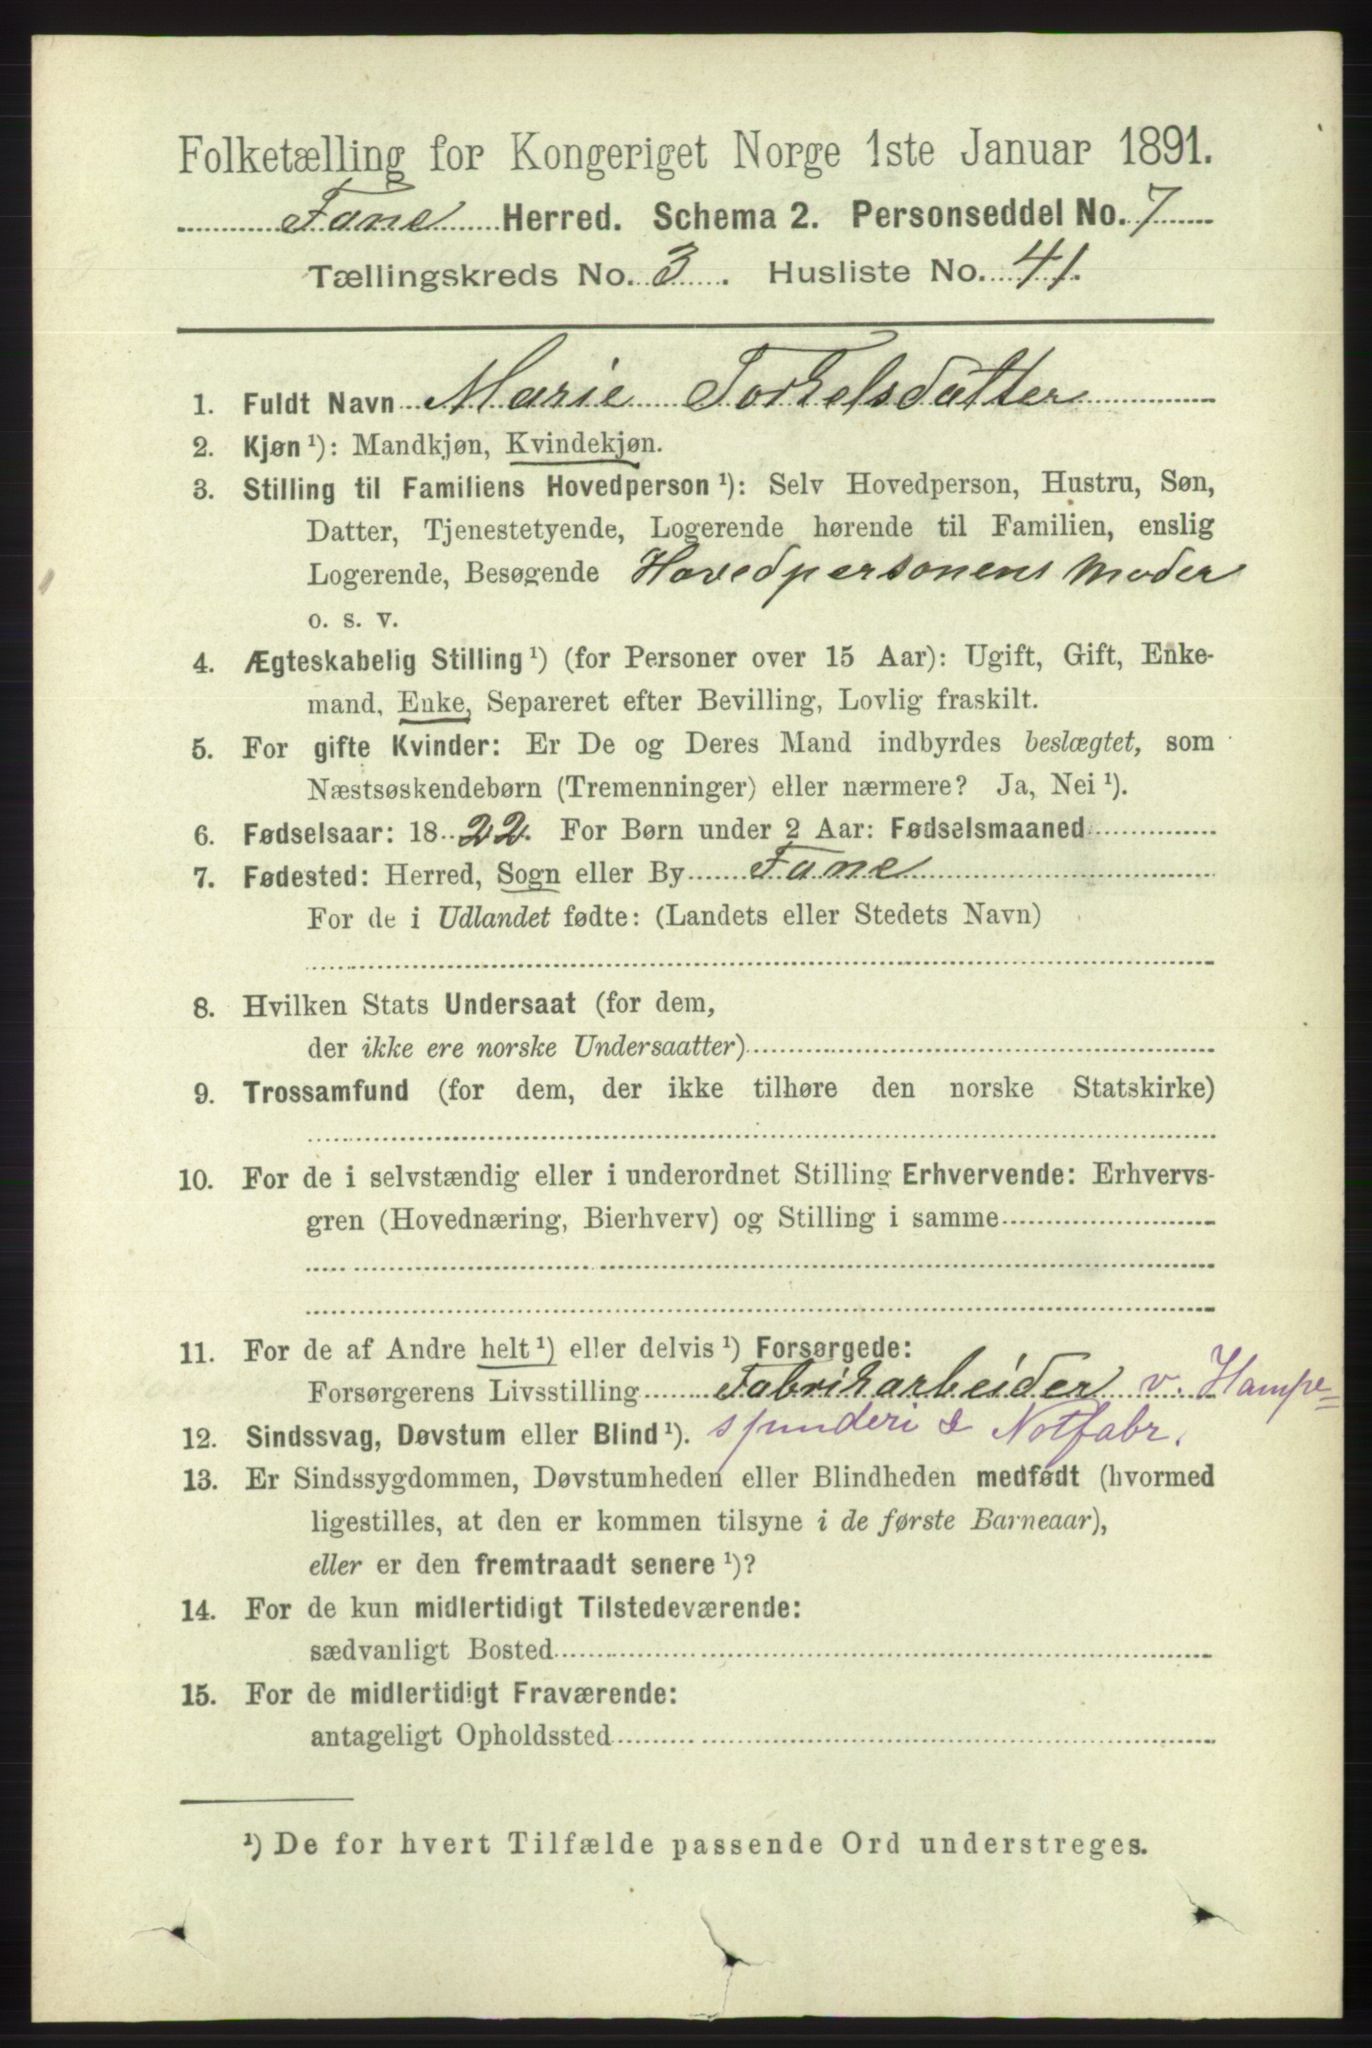 Folketælling for Kongeriget Norge 1ste Januar 1891.
Fane Herred. Schema 2. Personseddel No. 7
Tællingskreds No. 3. Husliste No. 41.
1. Fuldt Navn Marie Torkelsdatter
2. Kjøn ¹): Mandkjøn, Kvindekjøn.
3. Stilling til Familiens Hovedperson ¹): Selv Hovedperson, Hustru, Søn,
Datter, Tjenestetyende, Logerende hørende til Familien, enslig
Logerende, Besøgende Hovedpersonens Moder
o. s. v.
4. Ægteskabelig Stilling ¹) (for Personer over 15 Aar): Ugift, Gift, Enke-
mand, Enke, Separeret efter Bevilling, Lovlig fraskilt.
5. For gifte Kvinder: Er De og Deres Mand indbyrdes beslægtet, som
Næstsøskendebørn (Tremenninger) eller nærmere? Ja, Nei ¹).
6. Fødselsaar: 1822. For Børn under 2 Aar: Fødselsmaaned
7. Fødested: Herred, Sogn eller By Fane
For de i Udlandet fødte: (Landets eller Stedets Navn)
8. Hvilken Stats Undersaat (for dem,
der ikke ere norske Undersaatter)
9. Trossamfund (for dem, der ikke tilhøre den norske Statskirke)
10. For de i selvstændig eller i underordnet Stilling Erhvervende: Erhvervs-
gren (Hovednæring, Bierhverv) og Stilling i samme
11. For de af Andre helt ¹) eller delvis ¹) Forsørgede:
Forsørgerens Livsstilling Fabrikarbeider v. Hampe=
12. Sindssvag, Døvstum eller Blind ¹). spinderi & Notfabr.
13. Er Sindssygdommen, Døvstumheden eller Blindheden medfødt (hvormed
ligestilles, at den er kommen tilsyne i de første Barneaar),
eller er den fremtraadt senere ¹)?
14. For de kun midlertidigt Tilstedeværende:
sædvanligt Bosted
15. For de midlertidigt Fraværende:
antageligt Opholdssted
¹) De for hvert Tilfælde passende Ord understreges.